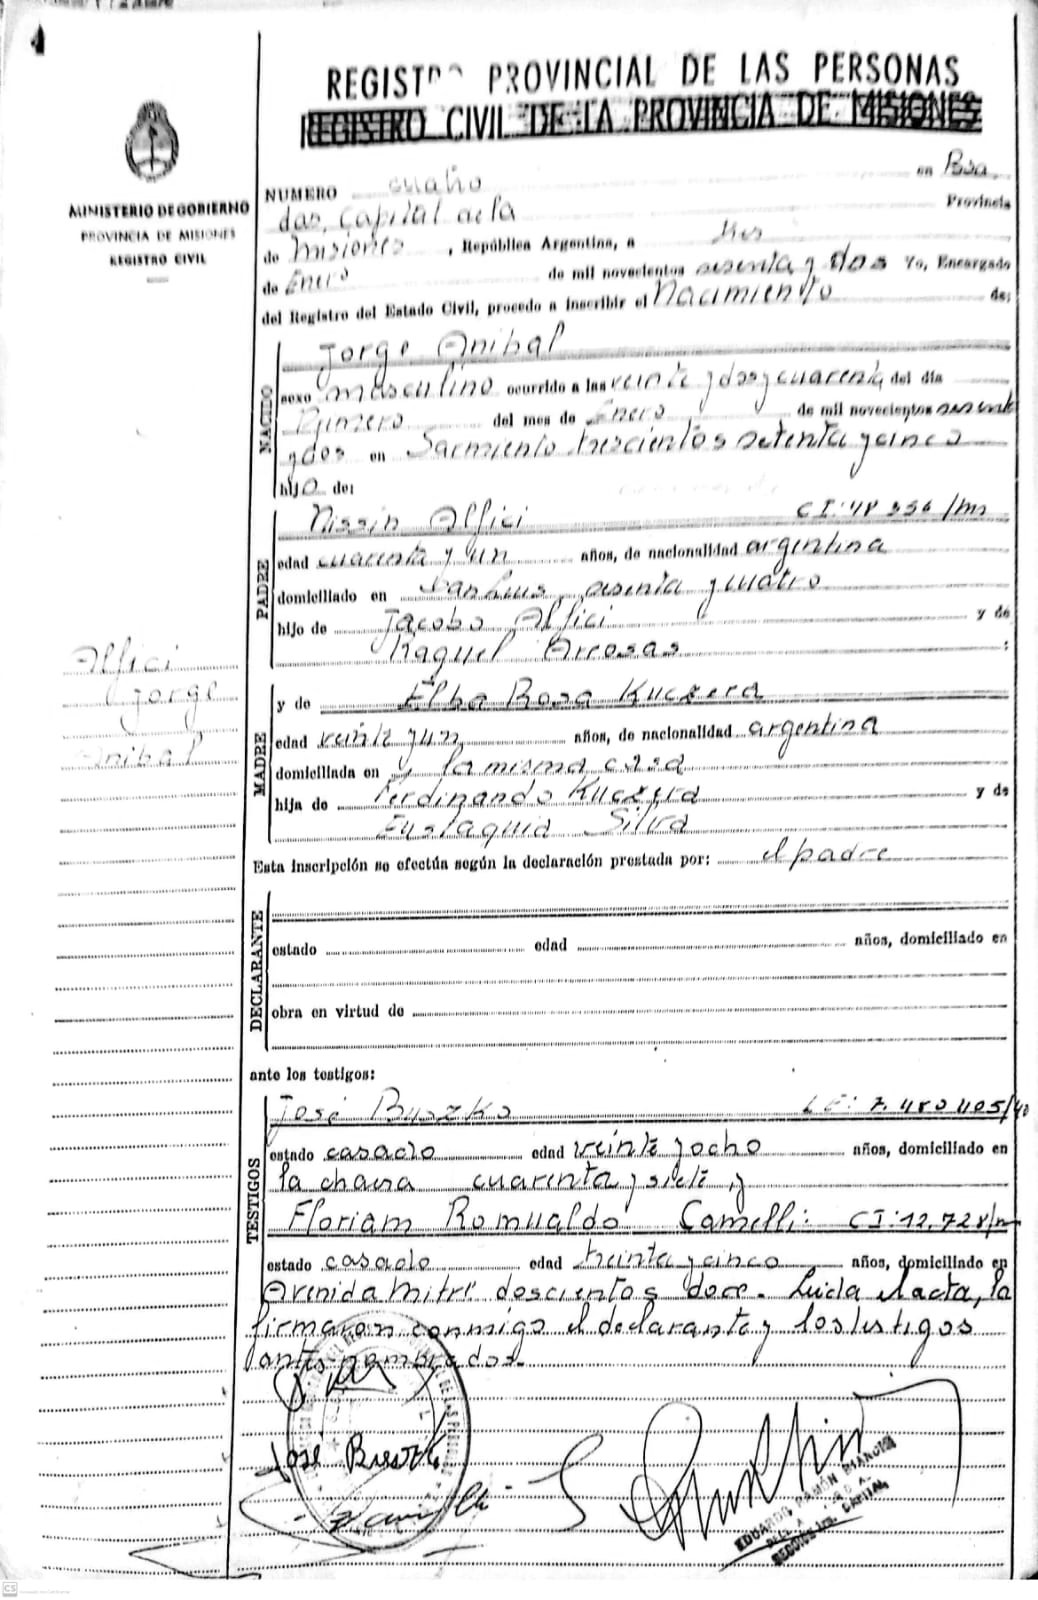 REGISTRO PROVINCIAL DE LAS PERSONAS
REGISTRO CIVIL DE LA PROVINCIA DE MISIONES
MINISTERIO DE GOBIERNO
PROVINCIA DE MISIONES
REGISTRO CIVIL
NUMERO cuatro en Posa
das, Capital de la Provincia
de Misiones, República Argentina, a tres
de Enero de mil novecientos sesenta y dos Yo, Encargado
del Registro del Estado Civil, procedo a inscribir el Nacimiento de:
NACIDO
Jorge Anibal
sexo masculino ocurrido a las veinte y dos y cuarenta del día
Primero del mes de Enero de mil novecientos sesent
y dos en Sarmiento trescientos setenta y cinco
hijo de:
PADRE
Nissin Alfici C I: 48 356/Ms
edad cuarenta y un años, de nacionalidad argentina
domiciliado en San Luis sesenta y cuatro
hijo de Jacobo Alfici y de
Raquel :
Alfici
Jorge
Anibal
MADRE
y de Elba Rosa Kuczera
edad veinte y un años, de nacionalidad argentina
domiciliada en y la misma casa
hija de Ferdinando Kuczera y de
Eustaquia Silva
Esta inscripción se efectúa según la declaración prestada por: el padre
DECLARANTE
estado edad años, domiciliado en
obra en virtud de
ante los testigos:
TESTIGOS
José Buszko L E: 7.480.405/40
estado casado edad veinte y ocho años, domiciliado en
la chacra cuarenta y siete y
Floriam Romualdo Camelli: C I: 12.728/m
estado casado edad treinta y cinco años, domiciliado en
Avenida Mitre doscientos doce. Leida el acta, la
firmaron conmigo el declarante y los testigos
antes nombrados.
José
EDUARDO RAMÓN BIANCHI
CAPITAL
CS